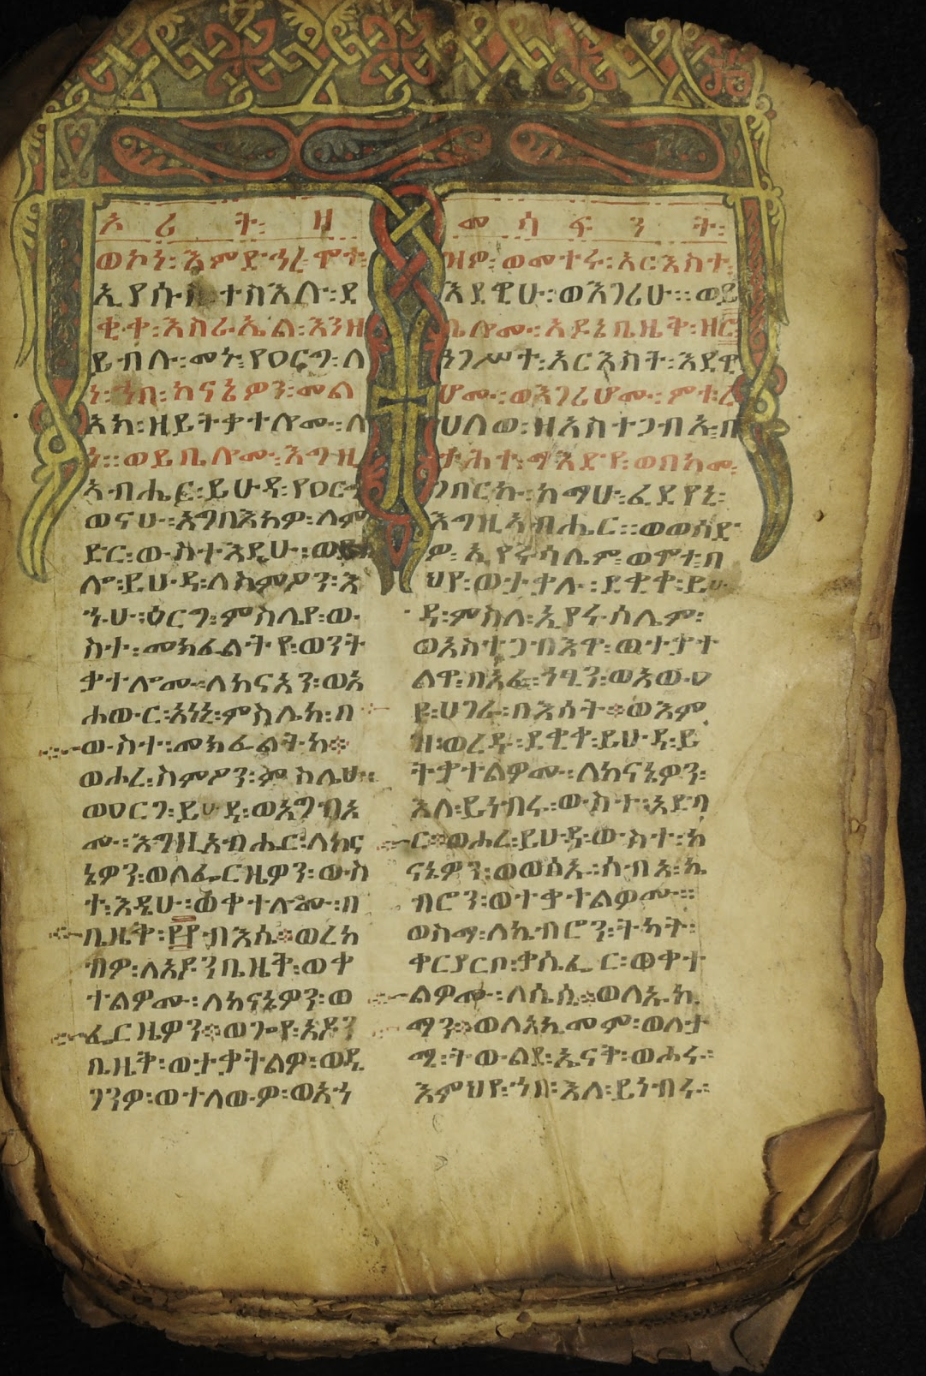 ኦሪት፡ ዘመሳፍንት፡
ወኮነ፡እምድኅረ፡ሞተ፡
ኢየሱስ፡ተስእሉ፡ደ
ቂቀ፡እስራኤል፡እንዘ
ይብሉ፡መኑ፡የዐርግ፡ለ
ነ፡ኀበ፡ከናኔዎን፡መል
እክ፡ዘይትቃተሎሙ፡ለ
ነ፡፡ወይቤሎሙ፡እግዚ
አብሔር፡ይሁዳ፡የዐርግ
ወናሁ፡አግባእክዎ፡ለም
ድር፡ውስተ፡እዴሁ፡
ሎ፡ይሁዳ፡ለስምዖን፡እ
ኁሁ፡ዕርግ፡ምስሌየ፡ው
ስተ፡መክፈልትየ፡ወንት
ቃተሎሙ፡ለከናእን፡ወአ
ሐውር፡አነኒ፡ምስሌከ፡በ
ውስተ፡መክፈልትከ፨
ወሖረ፡ስምዖን፡ምስሌሁ፡
ወዐርገ፡ይሁዳ፡ወአግብአ
ሙ፡እግዚአብሔር፡ለከና
ኔዎን፡ወለፌርዜዎን፡ውስ
ተ፡እዴሁ፡ወቀተሎሙ፡በ
ቤዜቅ፡፼ብእሴ፨ወረከ
ብዎ፡ለአዶንቤዜቅ፡ወቀ
ተልዎሙ፡ለከናኔዎን፡ወ
ፌርዜዎን፨ወጐየ፡አዶን
ቤዜቅ፡ወታቃትልዎ፡ወዴ
ገንዎ፡ወተለውዎ፡ወአኀ
ዝዎ፡ወመተሩ፡አርእስተ፡
እደዊሁ፡ወእገሪሁ፡፡ወይ
ቤሎሙ፡አዶኔቤዜቅ፡
ነገሥት፡አርእስት፡እደዊ
ሆሙ፡ወእገሪሆሙ፡ምቱ
ሀለወ፡ዘአስተጋብኡ፡በ
ታሕተ፡ማእድየ፡ወበከመ፡
ገበርኩ፡ከማሁ፡ፈደየኒ፡
እግዚአብሔር፡፡ወወሰድ
ዎ፡ኢየሩሳሌም፡ወሞተ፡በ
ህየ፡ወታቃሉ፡ደቂቀ፡ይሁ
ዳ፡ምስለ፡ኢየሩሳሌም፡
ወአስተጋብእዋ፡ወቀተ
ልዋ፡በአፈ፡ኀፂን፡ወአውዐ
ዩ፡ሀገረ፡በእሳት፨ወእም
ዝ፡ወረዱ፡ደቂቀ፡ይሁዳ፡ይ
ትቃተልዎሙ፡ለከናኔዎን፡
እለ፡ይነብሩ፡ውስተ፡አድባ
ር፨ወሖረ፡ይሁዳ፡ውስተ፡ከ
ናኔዎን፡ወወፅኡ፡ሰብአ፡ኬ
ብሮን፡ወተቃተልዎሙ፡፡
ወስማ፡ለኬብሮን፡ትካት፡
ቀርያርቦ፡ቃሴፌር፡ወቀተ
ልዎሙ፡ለሴሲ፨ወለኡኪ
ማን፨ወለአኪመም፡ወለታ
ሚ፡ትውልደ፡ኤናት፡ወሖሩ፡
እምህየ፡ኀበ፡እለ፡ይነብሩ፡